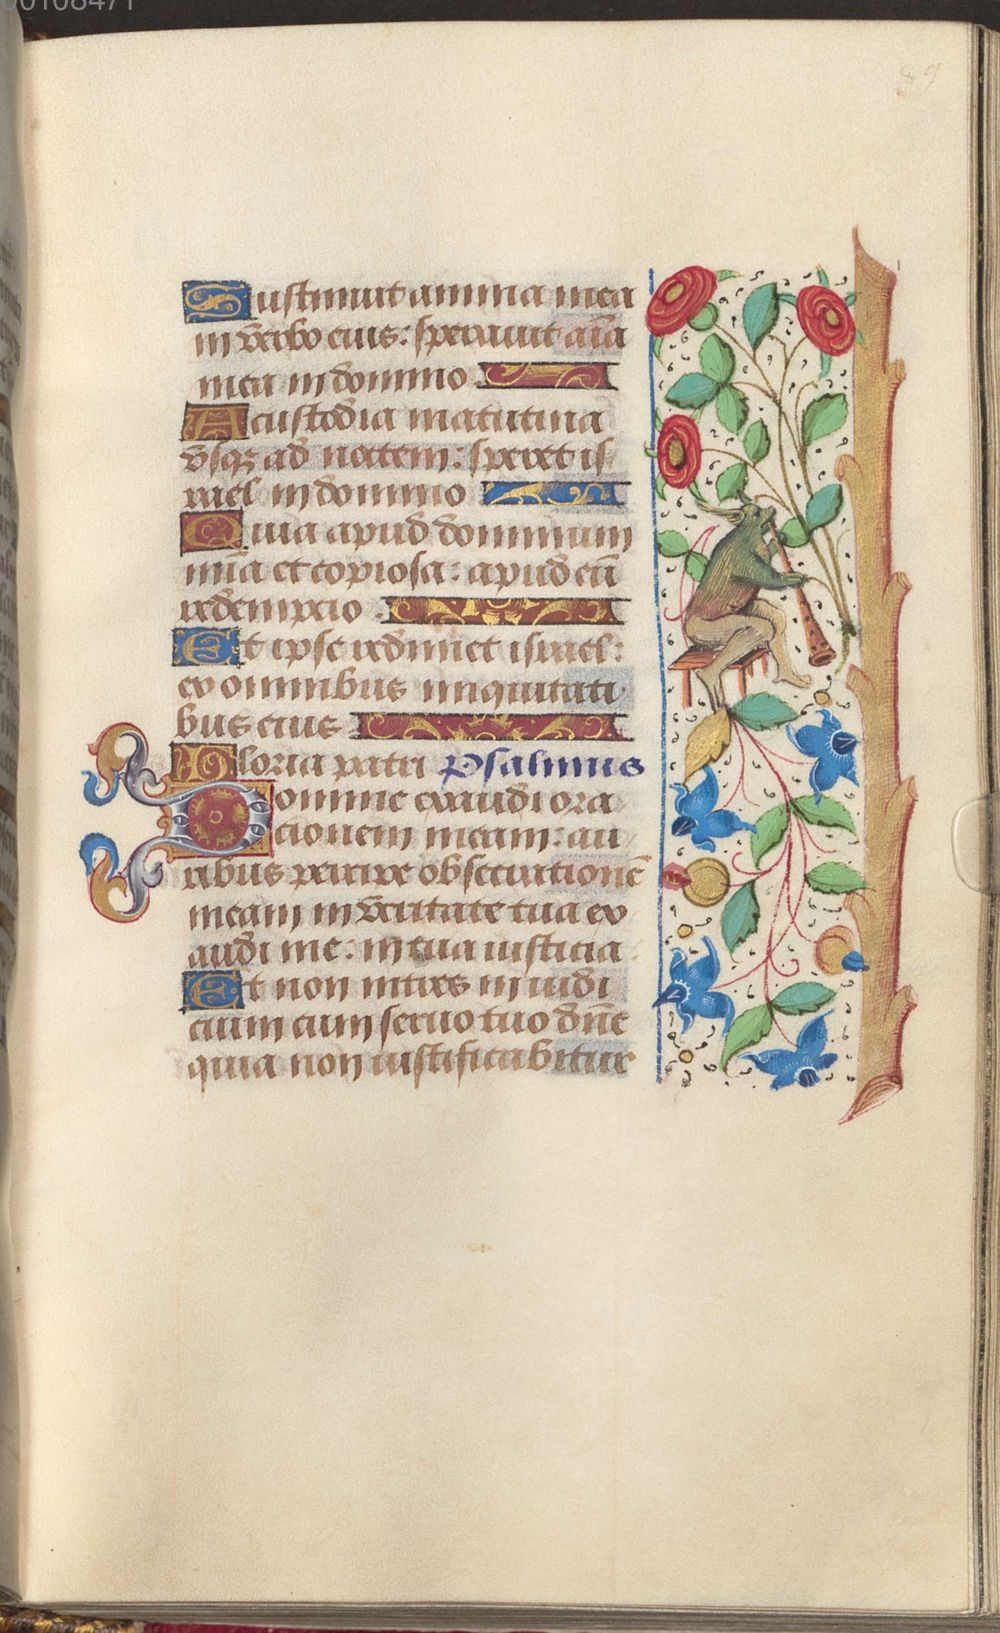 00108471
89
Sustinuit anima mea
in verbo eius: speravit aīa
mea in domino
A custodia matutina
vsqꝫ ad noctem: speret is
rael in domino
Quia apud dominum
mīa et copiosa: apud eū
redempcio
Et ipse redimet israel:
ex omnibus iniquitati
bus eius
Gloria patri Psalmus
Domine exaudi ora
cionem meam: au
ribus percipe obsecrationē
meam in veritate tua ex
audi me: in tua iusticia
Et non intres in iudi
cium cum seruo tuo dn̄e
quia non iustificabitur